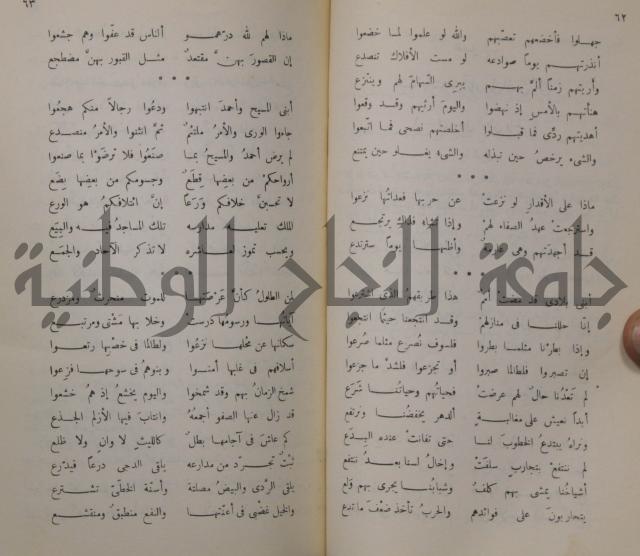 ٦٢
جهلوا فأخضعهم تعصّبهم والله لو علموا لما خضعوا
أنذرتهم يوماً صوادعه لو مست الأفلاك تنصدع
وأريتهم زمناً ألمَّ بهم يبرى السّهام لهم وينتزع
هنأتهم بالأمس إذ نهضوا واليوم أرثيهم وقد وقعوا
أهديتهم ردّى فما قبلوا أخلصتهم نصحى فما اتّبعوا
والشىء يرخصُ حين تبذله والشىء يغلو حين يمتنع
* * *
ماذا على الأقدارِ لو نزعتْ عن حربها فعداتُها نزعوا
واسترجعتْ عهدَ الصفاء لهمْ وإذا تشاء فذاك يرتجع
قد أجهدتهم وهى وأظنها يوماً سترتدع
* * *
أبنى بلادى قد مضتْ أممٌ هذا طريقهمُ الذى
إنّا حللنا فى منازلهمْ وقد انتجعنا حيثما انتجعوا
وإذا بطرْنا مثلما بطروا فلسوف نُصرع مثلما صُرعوا
إن تصبروا فلطالما صبروا أو تجزعوا فلشدَّ ما جزعوا
لم تَعْدُنا حالٌ لهم عرضتْ فحياتُهم وحياتُنا شَرَع
أبداً نعيش على مغالبةٍ الدهر يخفضُنا ونرتفع
ونراهُ يبتدعُ الخطوبَ لنا حتى تفانت عنده البِدَع
لم ننتفعْ بتجاربٍ سلفتْ وإخالُ لسنا بعدُ ننتفع
أشياخُنا يمشى بهم كلفٌ وشبابُنا يجرى بهم ولع
يتحاربون على فوائدهم والحربُ تأخذ ضعْفَ ما تدع
٦٣
ماذا لهم لله درّهمو ألناس قد عفّوا وهم جشعوا
إن القصورَ بهن مقتعدٌ مثل القبور بهنَّ مضطجع
* * *
أبنى المسيح وأحمدَ انتبهوا ودعُوا رجالاً منكم هجعُوا
جاءوا الورى والأمرُ ملتئمٌ ثمّ انثنوا والأمرُ منصدع
لم يرض أحمدُ والمسيحُ بما صنعُوا فلا ترضَوْا بما صنعوا
أرواحكمْ من بعضِها قِطَعٌ وجسومكم من بعضِها بِضَع
لا تحسبنَّ خلافكم وَرَعاً إنّ ائتلافكمُ هو الورع
الملك تعليه مدارسه تلك المساجدُ فيه والبِيَع
وبحسب تموز لا تذكر الآحادُ والجمَع
* * *
لمن الطلولُ كأنَّ عَرْصَتَها للموت ومزدرع
ورسومها درستْ وخلا بها مشتًى ومرتبع
سكانُها عن مُحلها نزعُوا ولطالما فى خصْبها رتعوا
أسلافهم فى غابها أمنوا وبنوهمُ فى سوحها فزعوا
شمخ الزمانُ بهم وقد شمخوا واليوم يخشعُ إذ همُ خشعوا
قد زال عنها الصفو أجمعُهُ وانتابَ فيها الأزلم الجذع
كم عاش فى آجامها بطلٌ كالليثِ لا وانٍ ولا ظلع
ثَبْتٌ تجرّد من مدارعه يلقى الدجى درعاً فيدّرع
يلقى الرّدى والبيضُ مصلتة وأسنّة الخطىّ تشترع
والخيل غضبى فى أعنّتها والنقع منطبقٌ ومنقشع
جامعة النجاح الوطنية